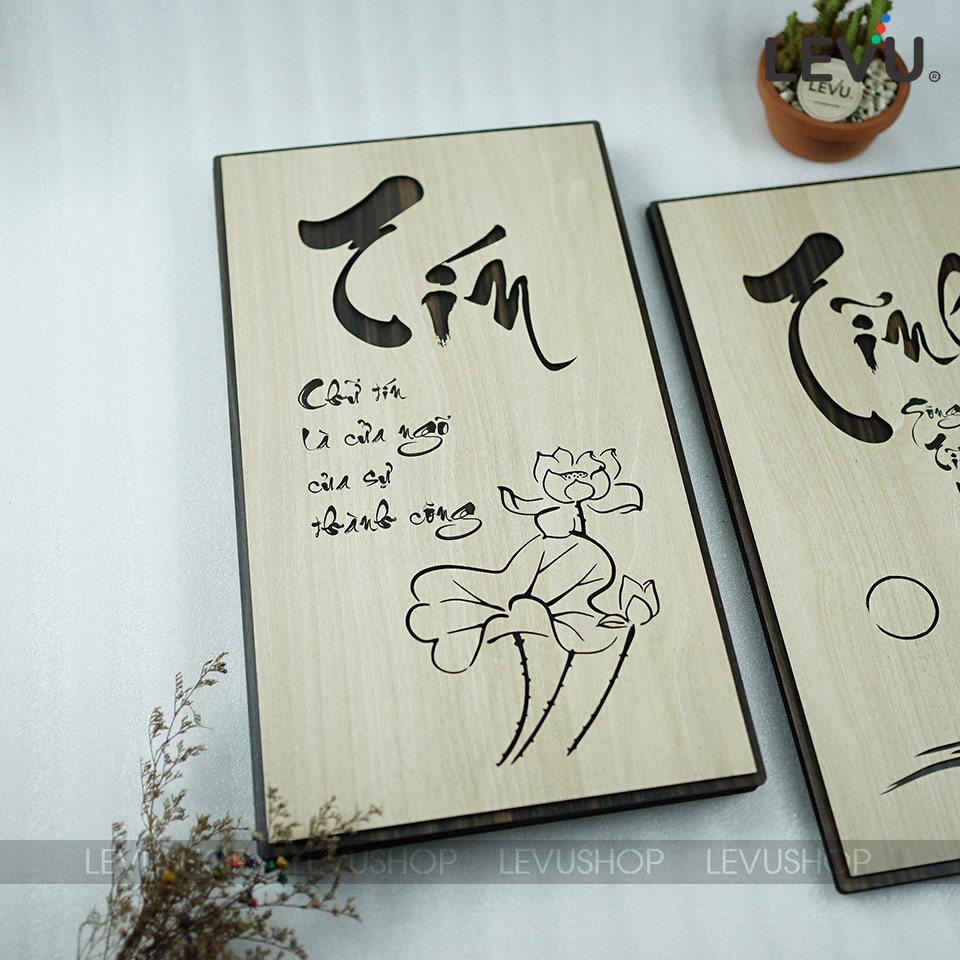 LEVU®
LEVU.
Tín
Chữ tín
là cửa ngõ
của sự
thành công
Tĩn
Sống
LEVUSHOP LEVUSHOP LEVUSHOP LEVUSHOP